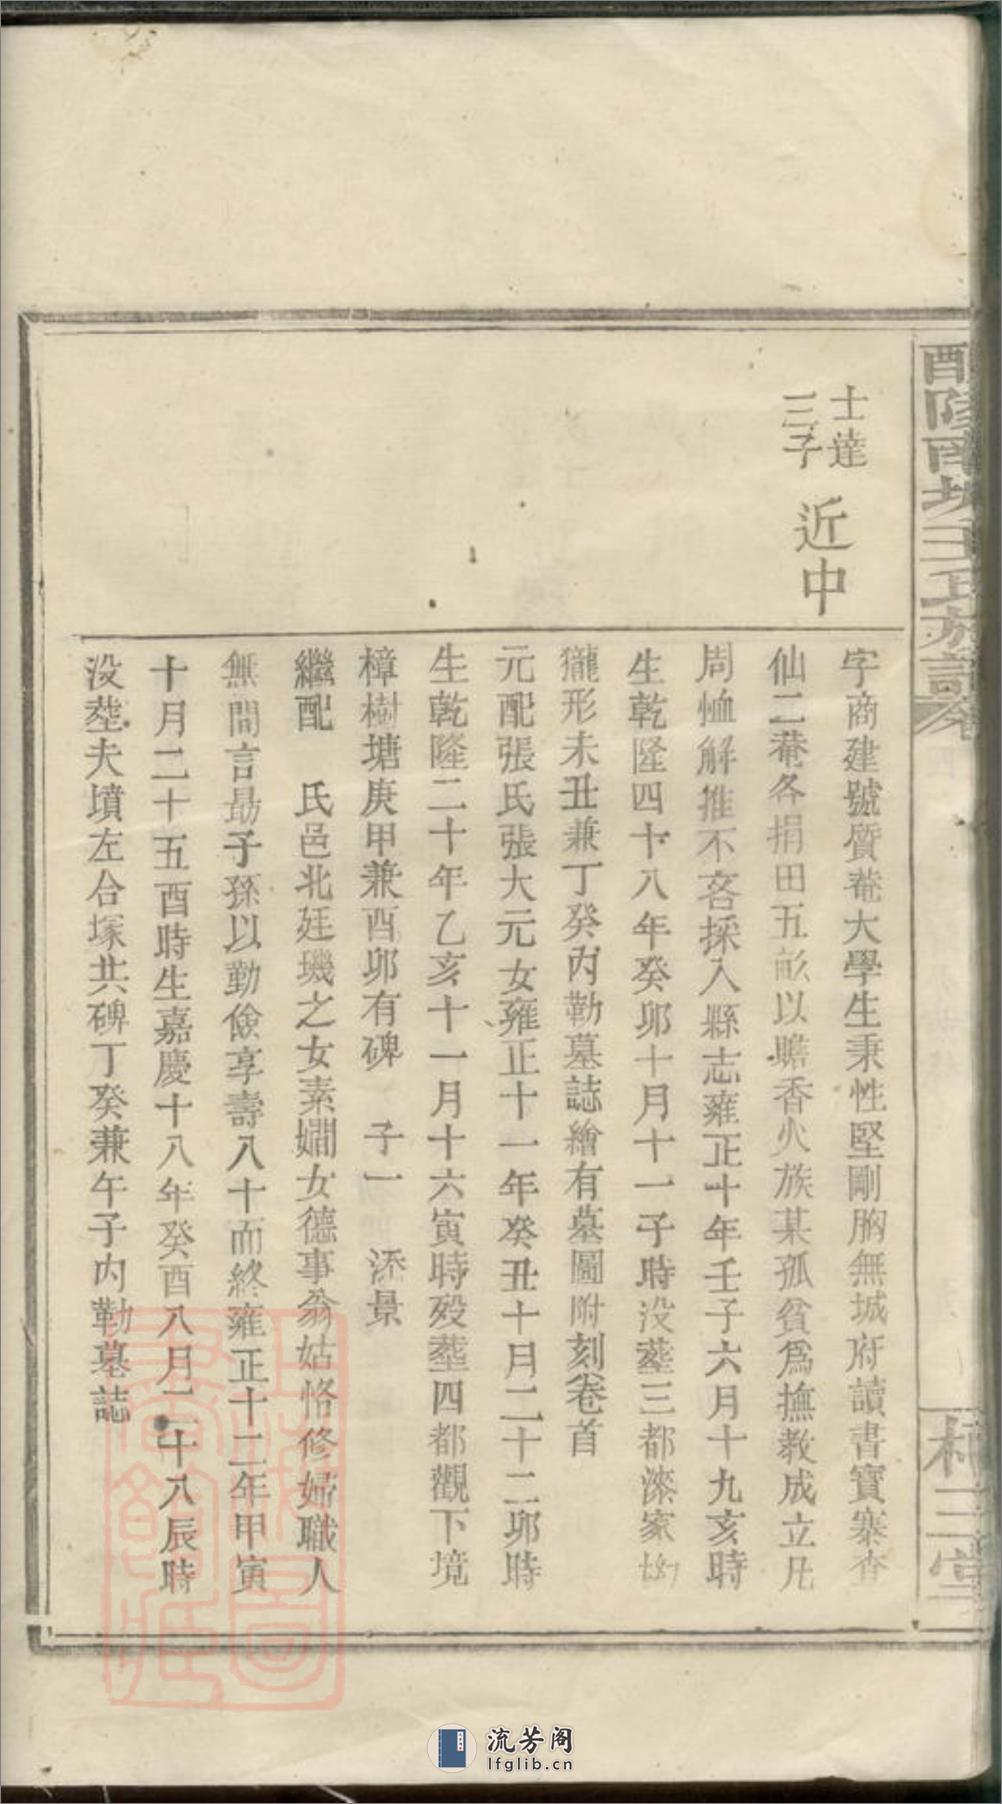 醴陵南城王氏族譜 卷
槐三堂
士達
三子
近中
字商建號質菴大學生秉性堅剛胸無城府讀書寶寨杳
仙二菴各捐田五畝以贍香火族某孤貧爲撫教成立凡
周恤解推不吝採入縣志雍正十年壬子六月十九亥時
生乾隆四十八年癸卯十月十一子時没塟三都漆家坳
龍形未丑兼丁癸内勒墓誌繪有墓圖附刻卷首
元配張氏張大元女雍正十一年癸丑十月二十二卯時
生乾隆二十年乙亥十一月十六寅時殁塟四都觀下境
樟樹塘庚甲兼酉卯有碑 子一 添景
繼配 氏邑北廷璣之女素嫺女德事翁姑恪修婦職人
無間言勗子孫以勤儉享壽八十而終雍正十二年甲寅
十月二十五酉時生嘉慶十八年癸酉八月二十八辰時
没塟夫墳左合塚共碑丁癸兼午子内勒墓誌
流芳阁
lfglib.cn